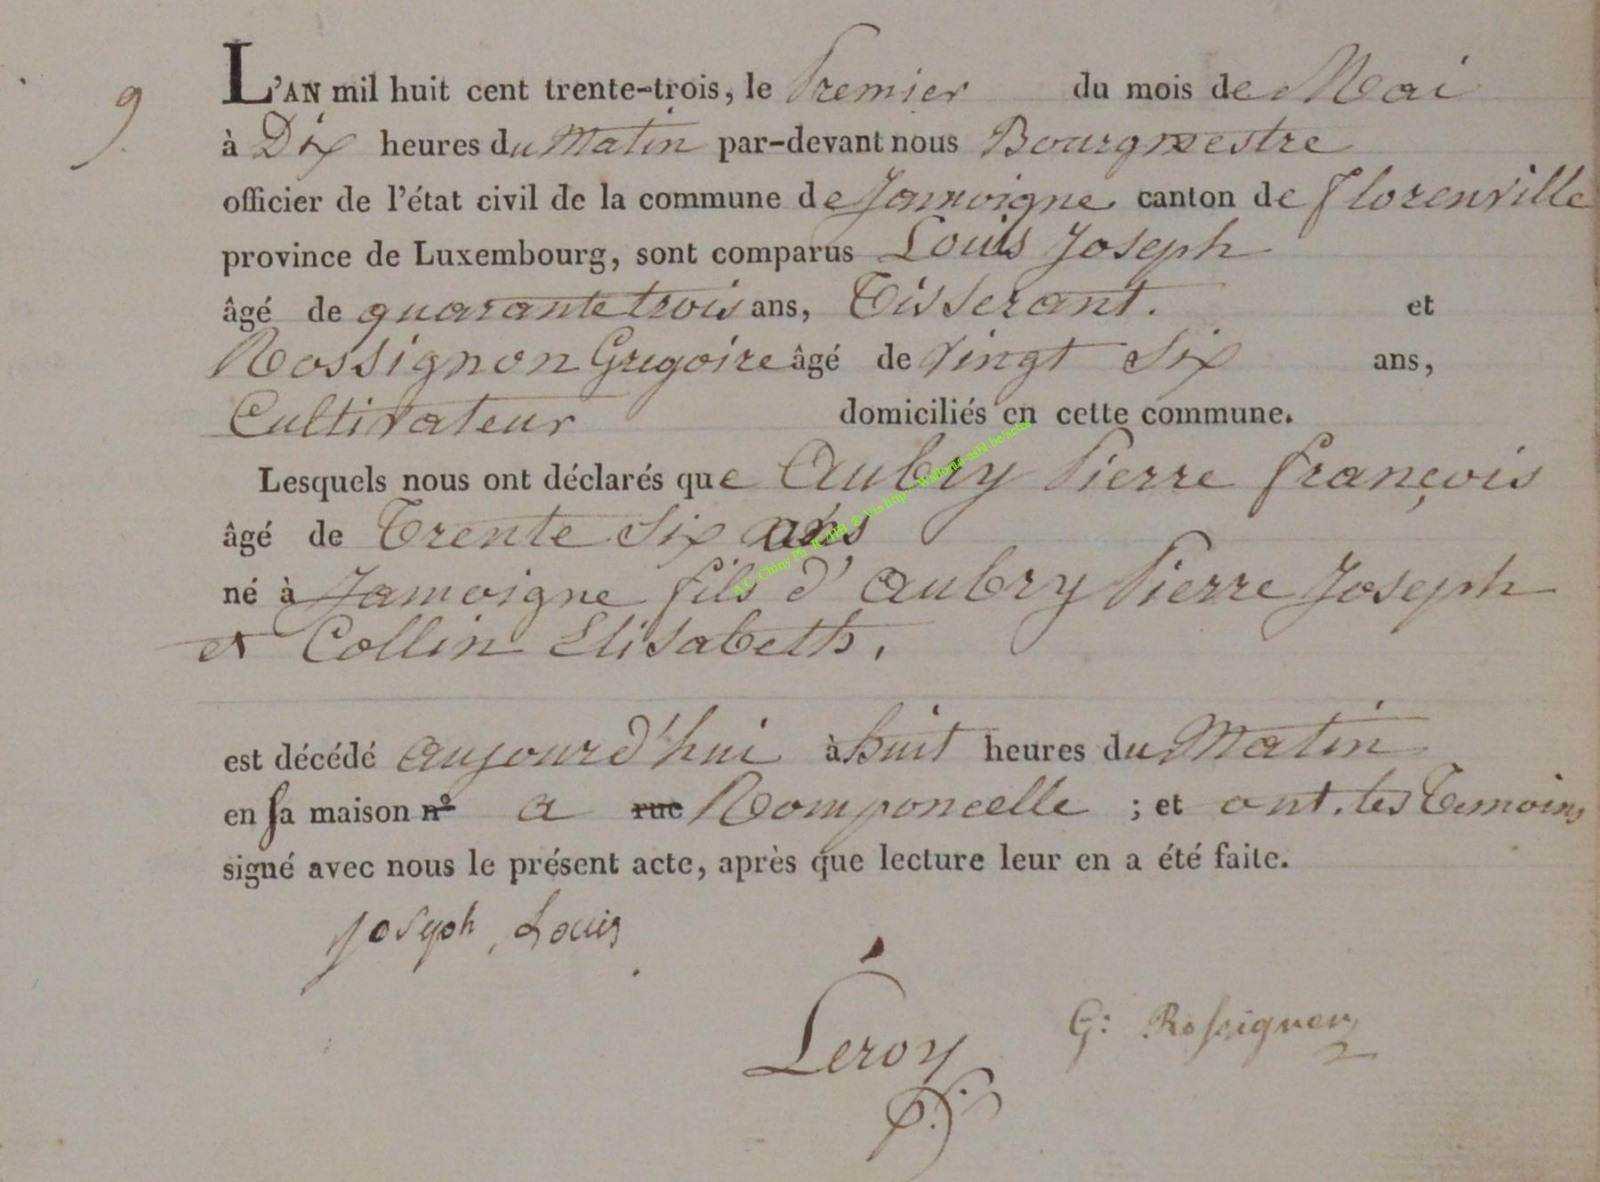 9.
L'AN mil huit cent trente-trois, le Premier du mois de Mai
à Dix heures du Matin par-devant nous Bourgmestre
officier de l'état civil de la commune de Jamoigne canton de Florenville
province de Luxembourg, sont comparus Louis Joseph
âgé de quarante trois ans, Tisserant. et
Rossignon Gregoire âgé de Vingt Six ans,
Cultivateur domiciliés en cette commune.
Lesquels nous ont déclarés que Aubry Pierre françois
âgé de Trente Six ans
né à Jamoigne fils d'Aubry Pierre Joseph
et Collin Elisabeth.
est décédé aujourd'hui à huit heures du Matin
en sa maison n° a rue Romponcelle ; et ont les Temoins
signé avec nous le présent acte, après que lecture leur en a été faite.
Joseph, Louis
Leroy
G: Rossignon